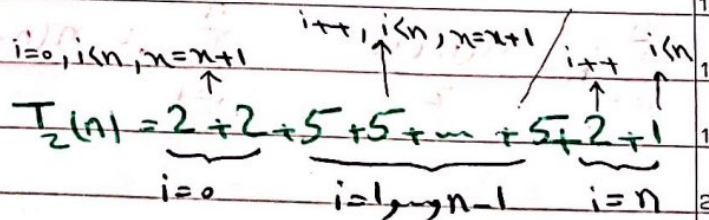 i++, i<n, x=x+1
i=0, i<n, x=x+1
i++ i<n
T₂(n) = 2 + 2 + 5 + 5 + ... + 5 + 2 + 1
i=0 i=1,...,n-1 i=n